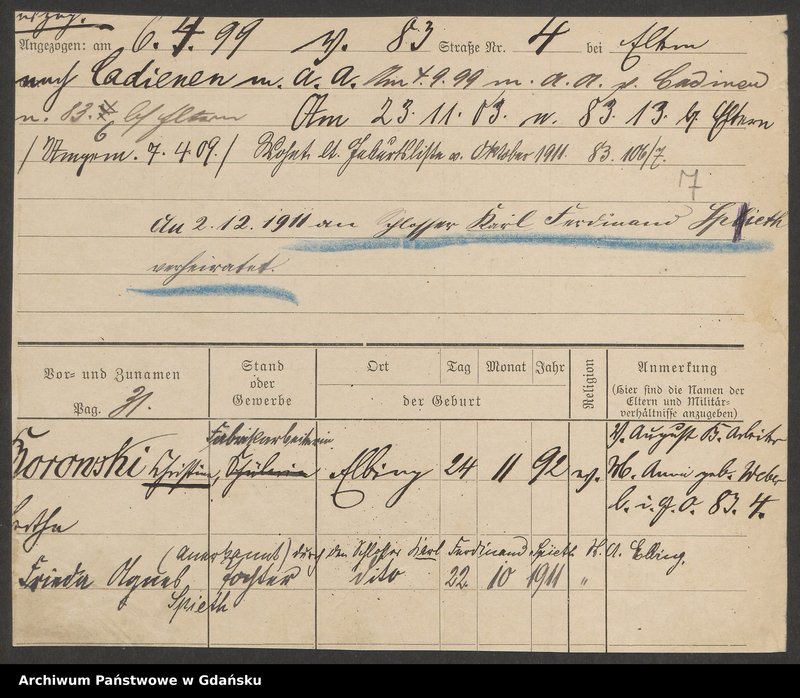 Angezogen: am 6. 4. 99 v. 83 Straße Nr. 4 bei Eltern
nach Cadienen m. A. A. Am 4. 9. 99 m. A. A. v. Cadinen
n. 83. 4 bei Eltern Am 23. 11. 03. n. 83. 13. b. Eltern
/ Angem. 7. 4. 09. / Wohnt lt. Geburtsliste v. Oktober 1911 83. 106/7.
7
Am 2. 12. 1911 an Schlosser Karl Ferdinand Spieth
verheiratet.
Vor- und Zunamen
Pag. 31.
Stand
oder
Gewerbe
Ort Tag Monat Jahr
der Geburt
Religion
Anmerkung
(Hier sind die Namen der
Eltern und Militär-
verhältnisse anzugeben)
Fabrikarbeiterin V. August B. Arbeiter
Boronski Christine, Schülerin Elbing 24 11 92 ev. M. Anna geb. Weber
b. i. g. O. 83. 4.
Bertha
(anerkannt) durch den Schlosser Karl Ferdinand Spieth St. A. Elbing.
Frieda Agnes Tochter dito 22. 10 1911 "
Spieth
Archiwum Państwowe w Gdańsku